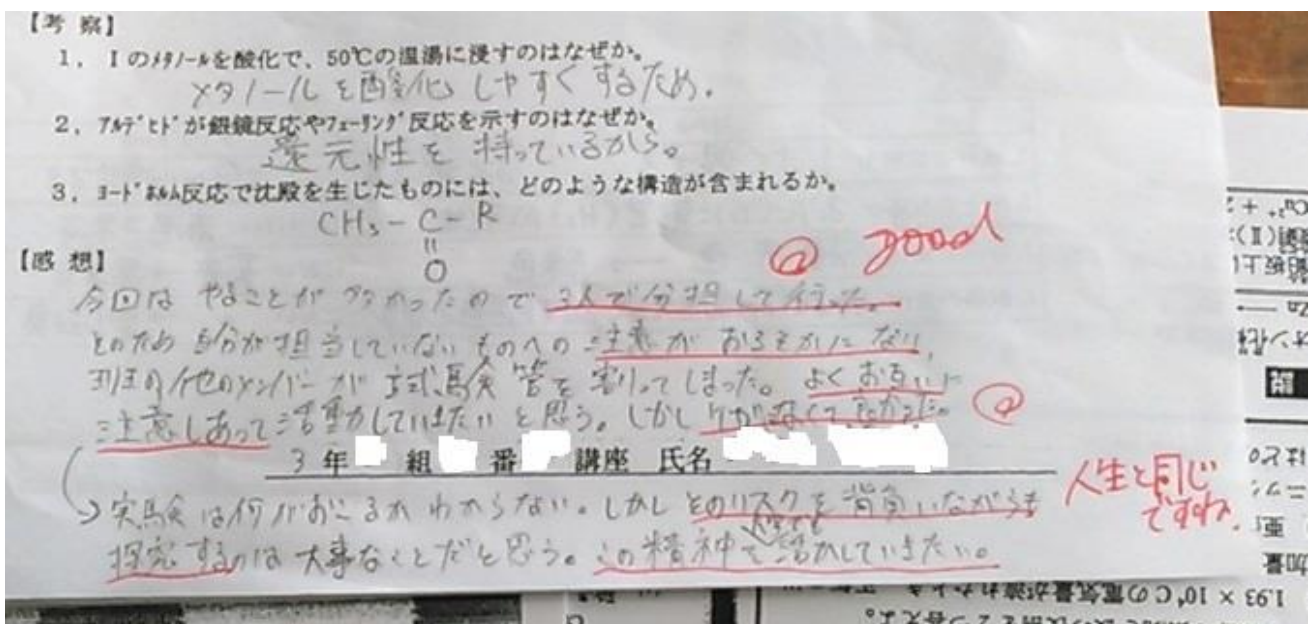 【考 察】
1．Iのメタノールを酸化で、50℃の温湯に浸すのはなぜか。
メタノールを酸化しやすくするため．
2．アルデヒドが銀鏡反応やフェーリング反応を示すのはなぜか。
還元性を持っているから。
3．ヨードホルム反応で沈殿を生じたものには、どのような構造が含まれるか。
CH₃－C－R
||
O
good
【感 想】
今回はやることが多かったので3人で分担して行った。
そのため自分が担当していないものへの注意がおろそかになり、
班の他のメンバーが試験管を割ってしまった。よくお互いに
注意しあって活動していきたいと思う。しかしケガがなくて良かった。
3年 組 番 講座 氏名
→実験は何がおこるかわからない。しかしそのリスクを背負いながらも
探究するのは大事なことだと思う。この精神を人生でも活かしていきたい。
人生と同じ
ですね．
Cu²⁺ +
(Ⅱ)
1.93 × 10⁴Cの電気量が流れたとき